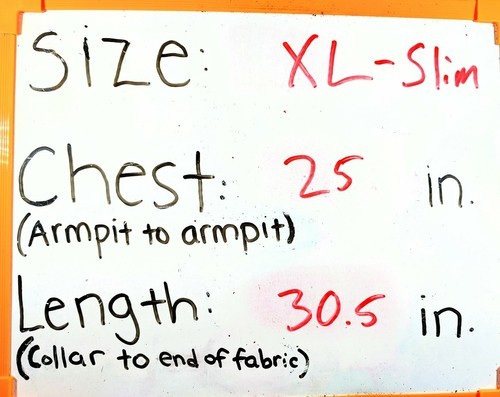 Size: XL-Slim
Chest: 25 in.
(Armpit to armpit)
Length: 30.5 in.
(Collar to end of fabric)